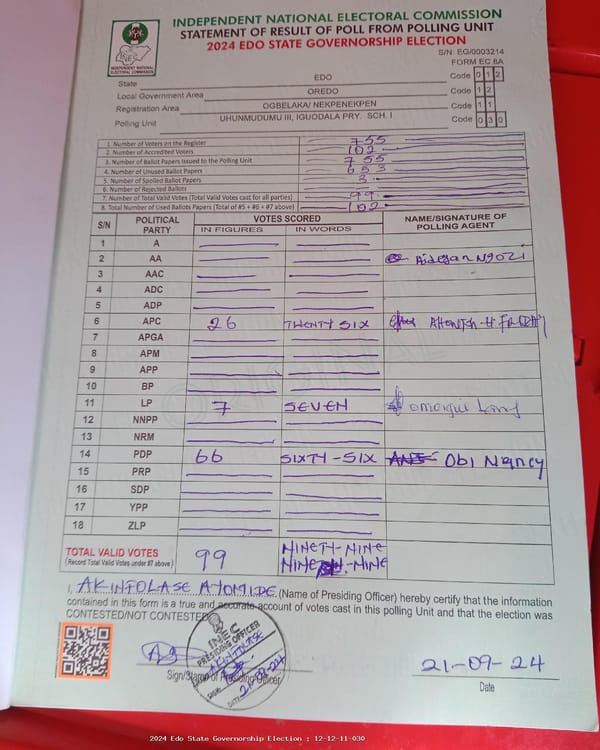 INDEPENDENT NATIONAL ELECTORAL COMMISSION
STATEMENT OF RESULT OF POLL FROM POLLING UNIT
2024 EDO STATE GOVERNORSHIP ELECTION
S/N: EG/0003214
FORM EC 8A
INEC
INDEPENDENT NATIONAL ELECTORAL COMMISSION
State EDO Code 0 1 2
Local Government Area OREDO Code 1 2
Registration Area OGBELAKA/ NEKPENEKPEN Code 1 1
Polling Unit UHUNMUDUMU III, IGUODALA PRY. SCH. I Code 0 3 0
1. Number of Voters on the Register 755
2. Number of Accredited Voters 102
3. Number of Ballot Papers Issued to the Polling Unit 755
4. Number of Unused Ballot Papers 653
5. Number of Spoiled Ballot Papers 3
6. Number of Rejected Ballots
7. Number of Total Valid Votes (Total Valid Votes cast for all parties) 99
8. Total Number of Used Ballots Papers (Total of #5 + #6 + #7 above) 102
S/N POLITICAL PARTY VOTES SCORED NAME/SIGNATURE OF POLLING AGENT
IN FIGURES IN WORDS
1 A
2 AA Ngozi
3 AAC
4 ADC
5 ADP
6 APC 26 TWENTY SIX
7 APGA
8 APM
9 APP
10 BP
11 LP 7 SEVEN
12 NNPP
13 NRM
14 PDP 66 SIXTY-SIX Obi Nancy
15 PRP
16 SDP
17 YPP
18 ZLP
TOTAL VALID VOTES 99 NINETY-NINE
(Record Total Valid Votes under #7 above) NINETY-NINE
I, AKINTOLASE AYOMIDE (Name of Presiding Officer) hereby certify that the information
contained in this form is a true and accurate account of votes cast in this polling Unit and that the election was
CONTESTED/NOT CONTESTED
INEC
PRESIDING OFFICER
AKINTOLASE
SIGN:
DATE: 21-09-24
Sign/Stamp of Presiding Officer
21-09-24
Date
2024 Edo State Governorship Election : 12-12-11-030